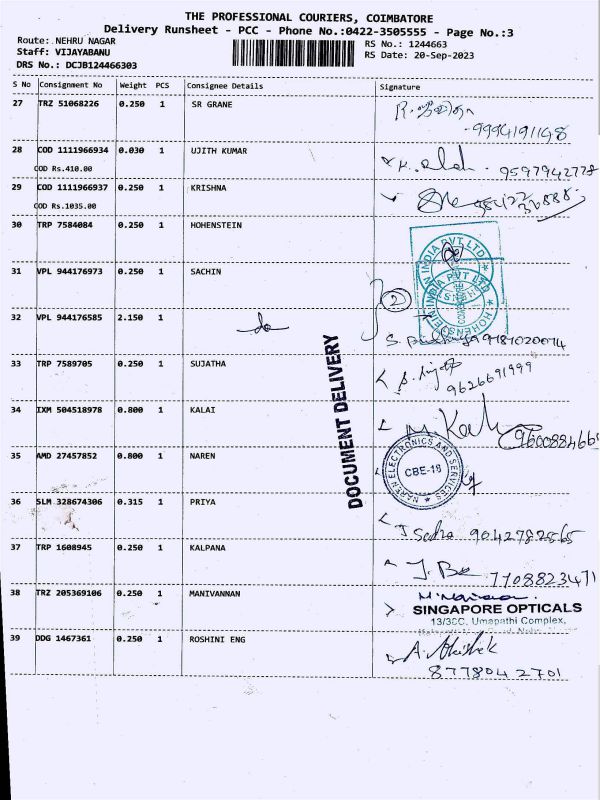 THE PROFESSIONAL COURIERS, COIMBATORE
Delivery Runsheet - PCC - Phone No.:0422-3505555 - Page No.:3
Route: NEHRU NAGAR
RS No.: 1244663
Staff: VIJAYABANU
RS Date: 20-Sep-2023
DRS No.: DCJB124466303
S No Consignment No Weight PCS Consignee Details Signature
27 TRZ 51068226 0.250 1 SR GRANE
9994191148
28 COD 1111966934 0.030 1 UJITH KUMAR
COD Rs.410.00
9597942778
29 COD 1111966937 0.250 1 KRISHNA
COD Rs.1035.00
30 TRP 7584084 0.250 1 HOHENSTEIN
HOHENSTEIN INDIA PVT LTD
31 VPL 944176973 0.250 1 SACHIN
2
32 VPL 944176585 2.150 1 do
DOCUMENT DELIVERY
33 TRP 7589705 0.250 1 SUJATHA
9626691999
34 IXM 504518978 0.800 1 KALAI
35 AMD 27457852 0.800 1 NAREN
NAREN ELECTRONICS AND SERVICES
CBE-18
36 SLM 328674306 0.315 1 PRIYA
37 TRP 1608945 0.250 1 KALPANA
7708823471
38 TRZ 205369106 0.250 1 MANIVANNAN
SINGAPORE OPTICALS
13/33C, Umapathi Complex,
39 DDG 1467361 0.250 1 ROSHINI ENG
A. Abishek
8778042701